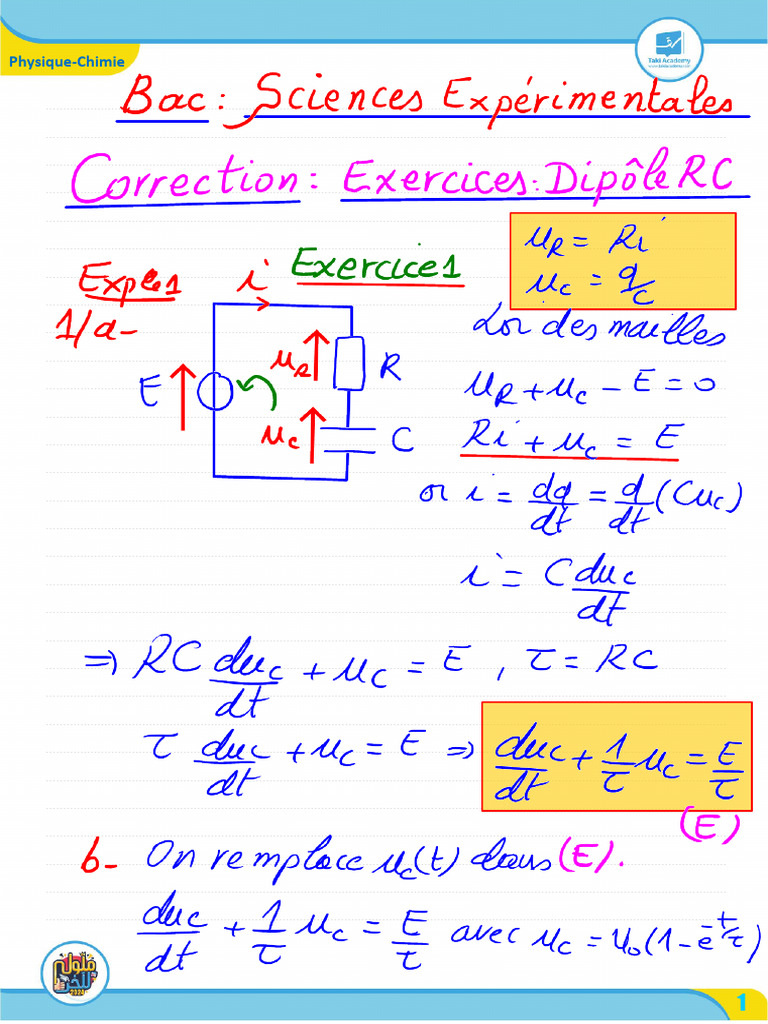 Physique-Chimie
Taki Academy
www.takiacademy.com
Bac: Sciences Expérimentales
Correction: Exercices: Dipôle RC
u_R = Ri
u_C = q/C
Expce1 i Exercice1
1/a-
Loi des mailles
E u_R R
u_C C
u_R + u_C - E = 0
Ri + u_C = E
or i = dq/dt = d/dt (Cu_C)
i = C du_C/dt
=> RC du_C/dt + u_C = E , τ = RC
τ du_C/dt + u_C = E => du_C/dt + 1/τ u_C = E/τ
(E)
b- On remplace u_C(t) dans (E).
du_C/dt + 1/τ u_C = E/τ avec u_C = U_0(1-e^-t/τ)
2024
1